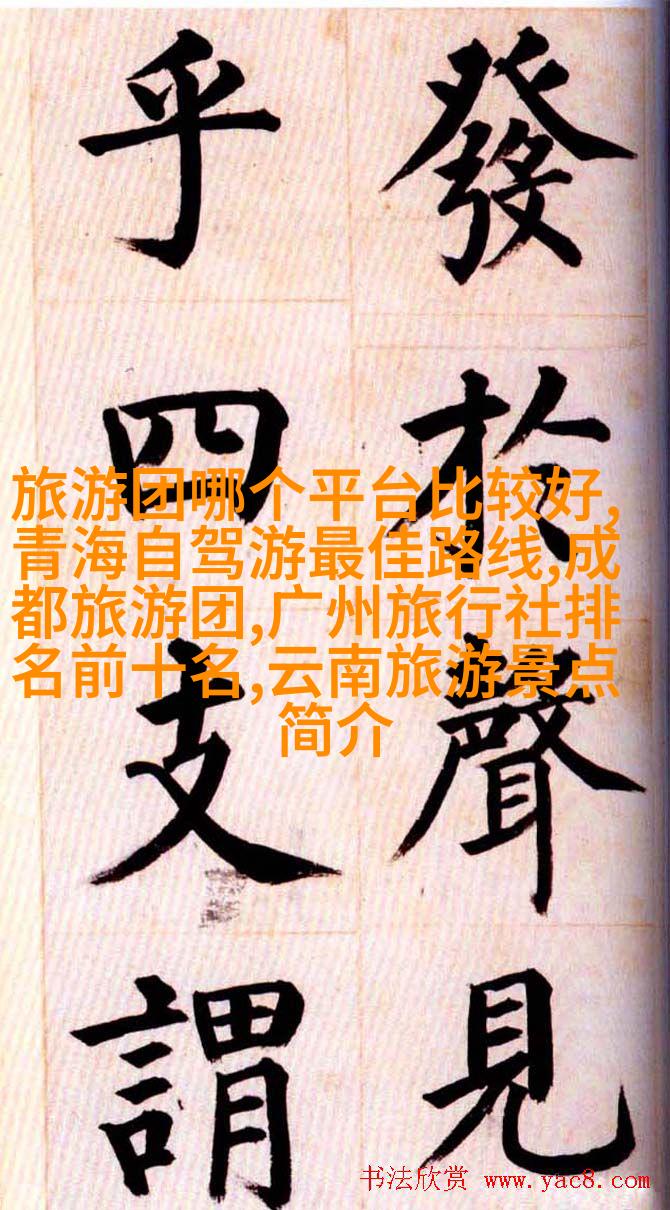 發於聲見
乎四支謂
旅游团哪个平台比较好,
青海自驾游最佳路线,成
都旅游团,广州旅行社排
名前十名,云南旅游景点
简介
书法欣赏 www.yac8.com